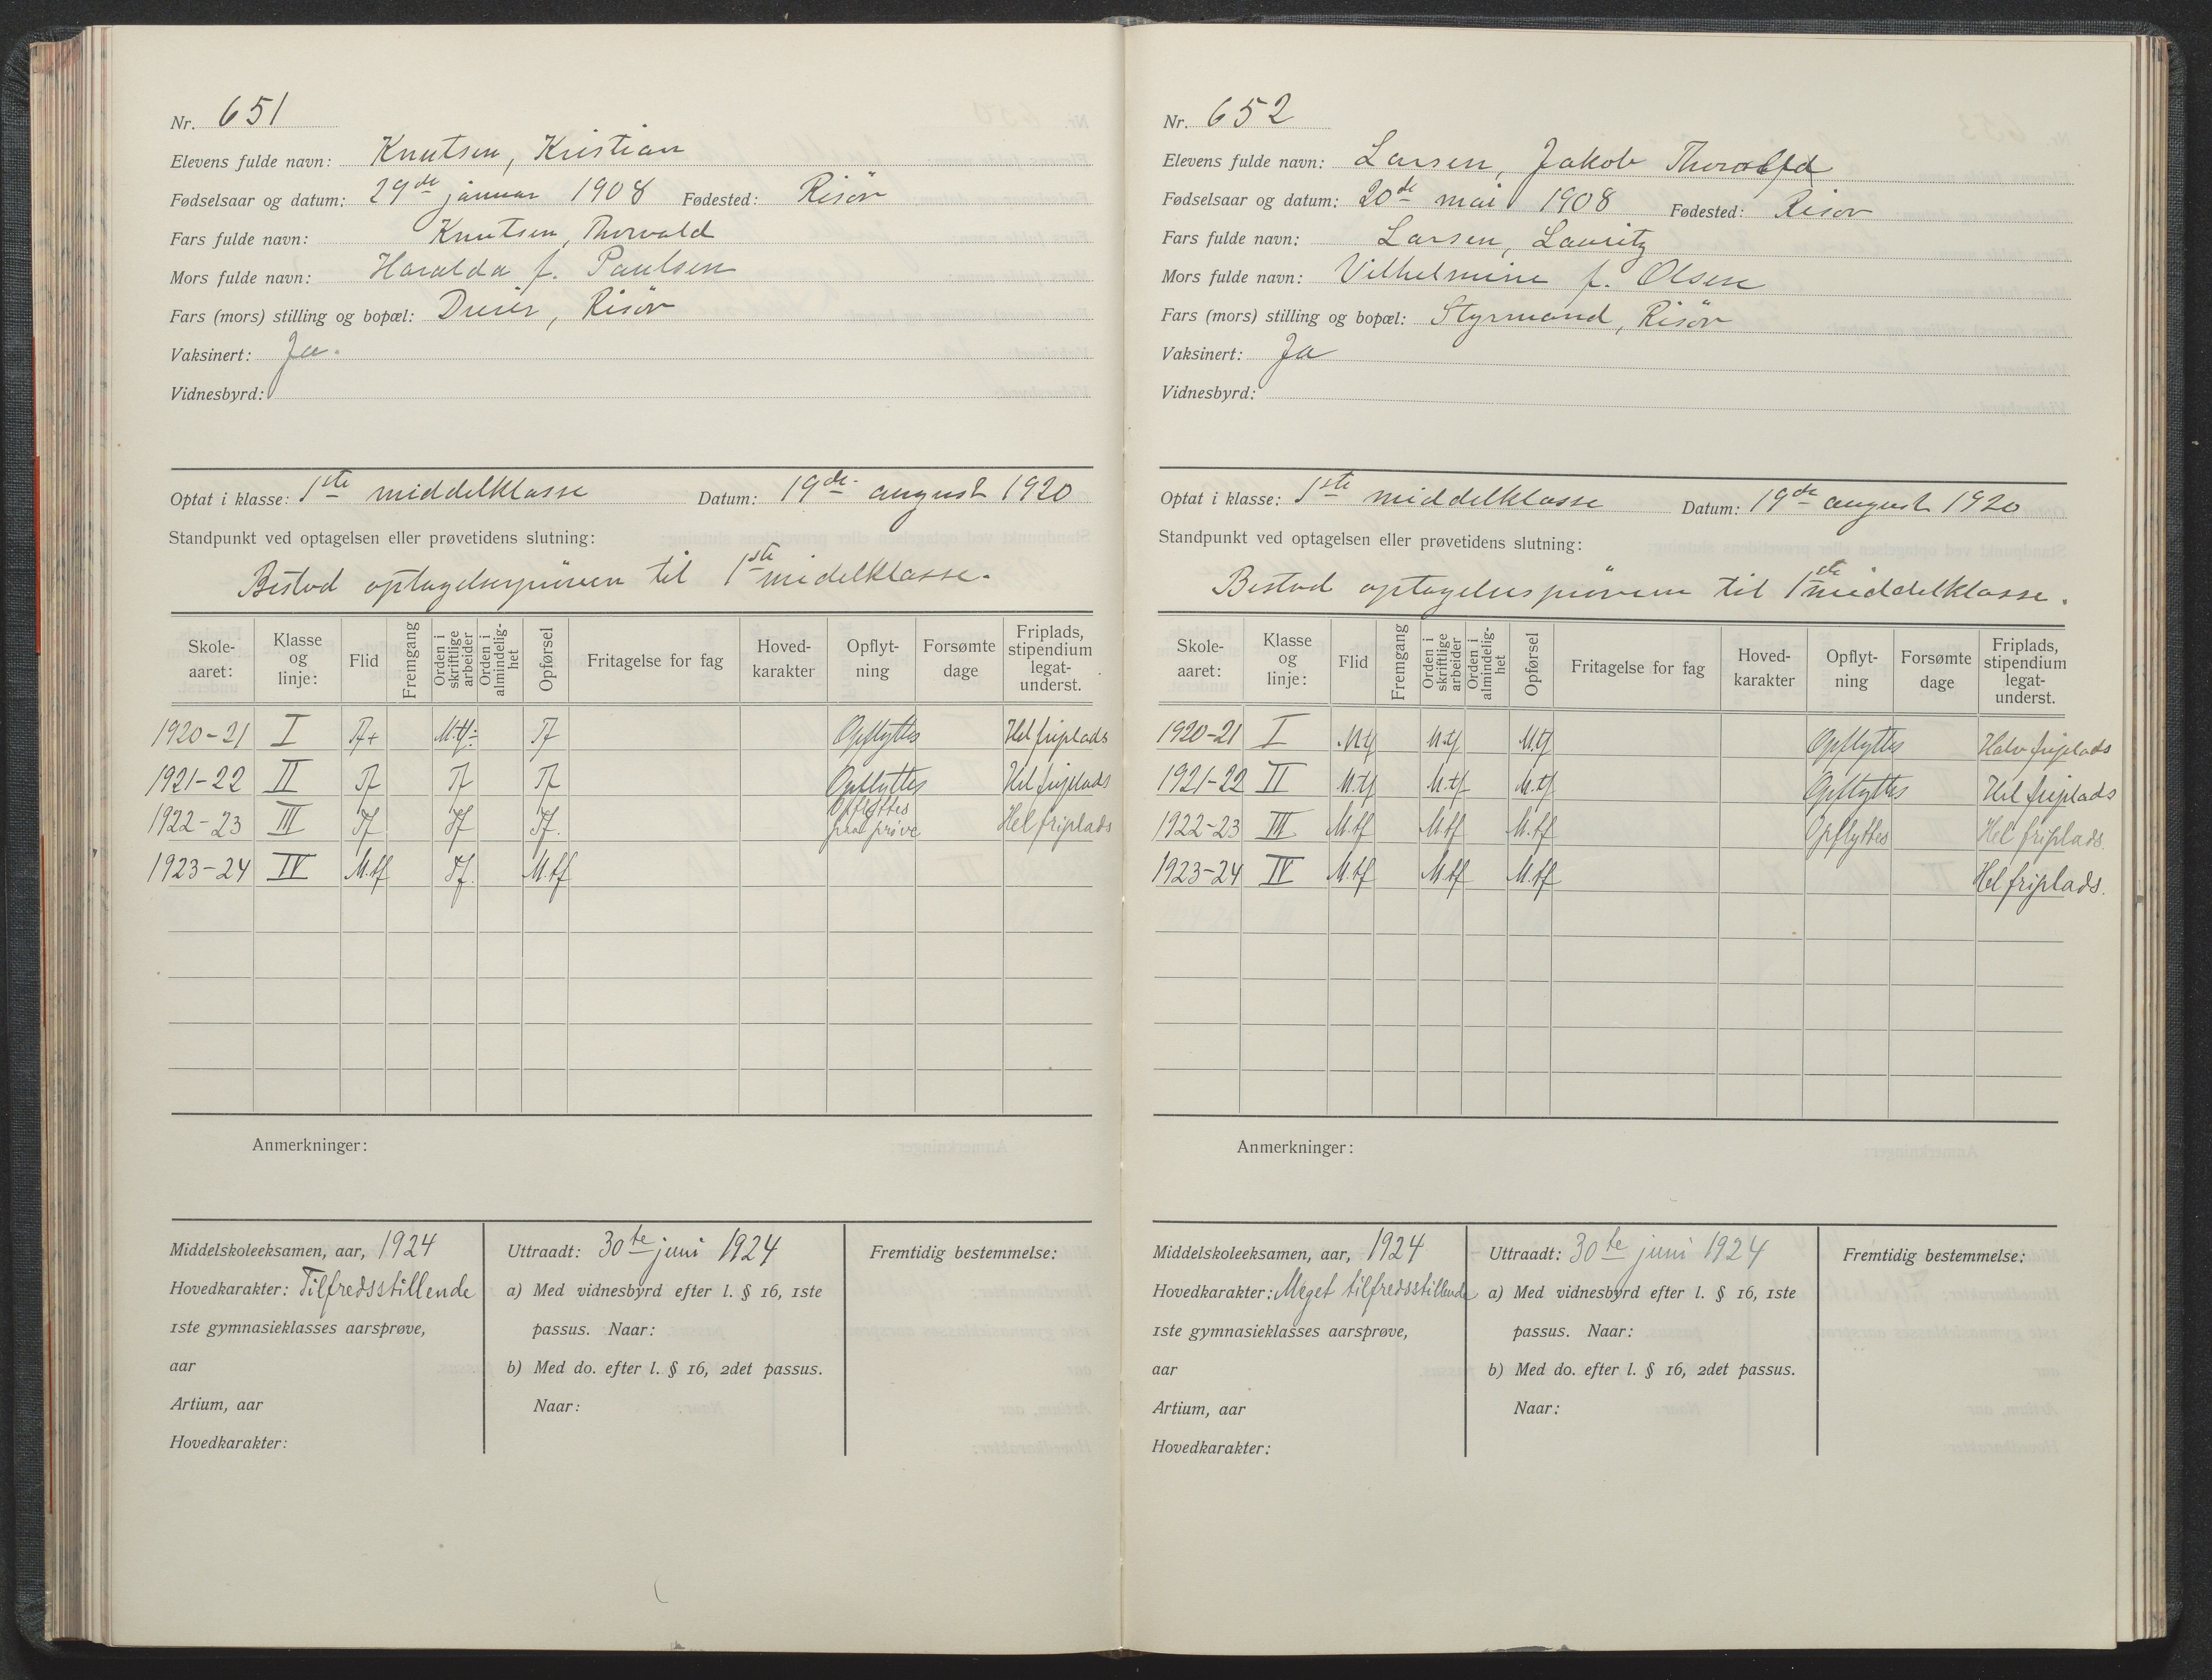 Nr. 651
Elevens fulde navn: Knutsen, Kristian
Fødselsaar og datum: 29de januar 1908 Fødested: Risör
Fars fulde navn: Knutsen, Thorvald
Mors fulde navn: Haralda f. Paulsen
Fars (mors) stilling og bopæl: Dreier, Risör
Vaksinert: Ja.
Vidnesbyrd:
Optat i klasse: 1ste middelklasse Datum: 19de august 1920
Standpunkt ved optagelsen eller prøvetidens slutning:
Bestod optagelsesprüven til 1ste midelklasse.
Skole-aaret: Klasse og linje: Flid Fremgang Orden i skriftlige arbeider Orden i almindelig-het Opførsel Fritagelse for fag Hoved-karakter Opflyt-ning Forsømte dage Friplads, stipendium legat-underst.
1920-21 I Tf+ M.tf÷ Tf Opflyttes Hel friplads
1921-22 II Tf Tf Tf Opflyttes Hel friplads
1922-23 III Tf Tf Tf. Opflyttes paa prøve Hel friplads
1923-24 IV M.tf Tf. M.tf
Anmerkninger:
Middelskoleeksamen, aar, 1924
Hovedkarakter: Tilfredsstillende
1ste gymnasieklasses aarsprøve,
aar
Artium, aar
Hovedkarakter:
Uttraadt: 30te juni 1924
a) Med vidnesbyrd efter l. § 16, 1ste
passus. Naar:
b) Med do. efter l. § 16, 2det passus.
Naar:
Fremtidig bestemmelse:
Nr. 652
Elevens fulde navn: Larsen, Jakob Thoralfd
Fødselsaar og datum: 20de mai 1908 Fødested: Risör
Fars fulde navn: Larsen, Lauritz
Mors fulde navn: Vilhelmine f. Olsen
Fars (mors) stilling og bopæl: Styrmand, Risör
Vaksinert: Ja
Vidnesbyrd:
Optat i klasse: 1ste middelklasse Datum: 19de august 1920
Standpunkt ved optagelsen eller prøvetidens slutning:
Bestod optagelsesprüven til 1ste middelklasse.
Skole-aaret: Klasse og linje: Flid Fremgang Orden i skriftlige arbeider Orden i almindelig-het Opførsel Fritagelse for fag Hoved-karakter Opflyt-ning Forsømte dage Friplads, stipendium legat-underst.
1920-21 I M.tf M.tf M.tf Opflyttes Halv friplads
1921-22 II M.tf M.tf M.tf Opflyttes Hel friplads
1922-23 III M.tf M.tf M.tf Opflyttes Hel friplads.
1923-24 IV M.tf M.tf M.tf Hel friplads.
Anmerkninger:
Middelskoleeksamen, aar, 1924
Hovedkarakter: Meget tilfredsstillende
1ste gymnasieklasses aarsprøve,
aar
Artium, aar
Hovedkarakter:
Uttraadt: 30te juni 1924
a) Med vidnesbyrd efter l. § 16, 1ste
passus. Naar:
b) Med do. efter l. § 16, 2det passus.
Naar:
Fremtidig bestemmelse: